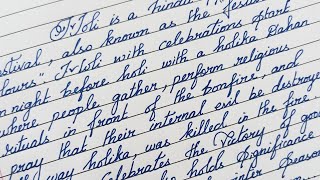 Holi is a hindu
festival, also known as the festi
lours". Holi with celebrations start
night before holi with a holika Dahan
where people gather, perform religious
rituals in front of the bonfire, and
pray that their internal evil be destroye
way holika, was killed in the fire
Celebrates the Victory of goo
holds significance